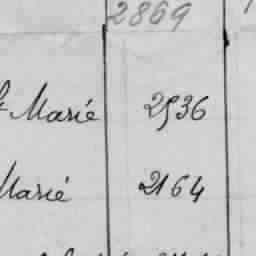 2869
Marié 2536
Marié 2164